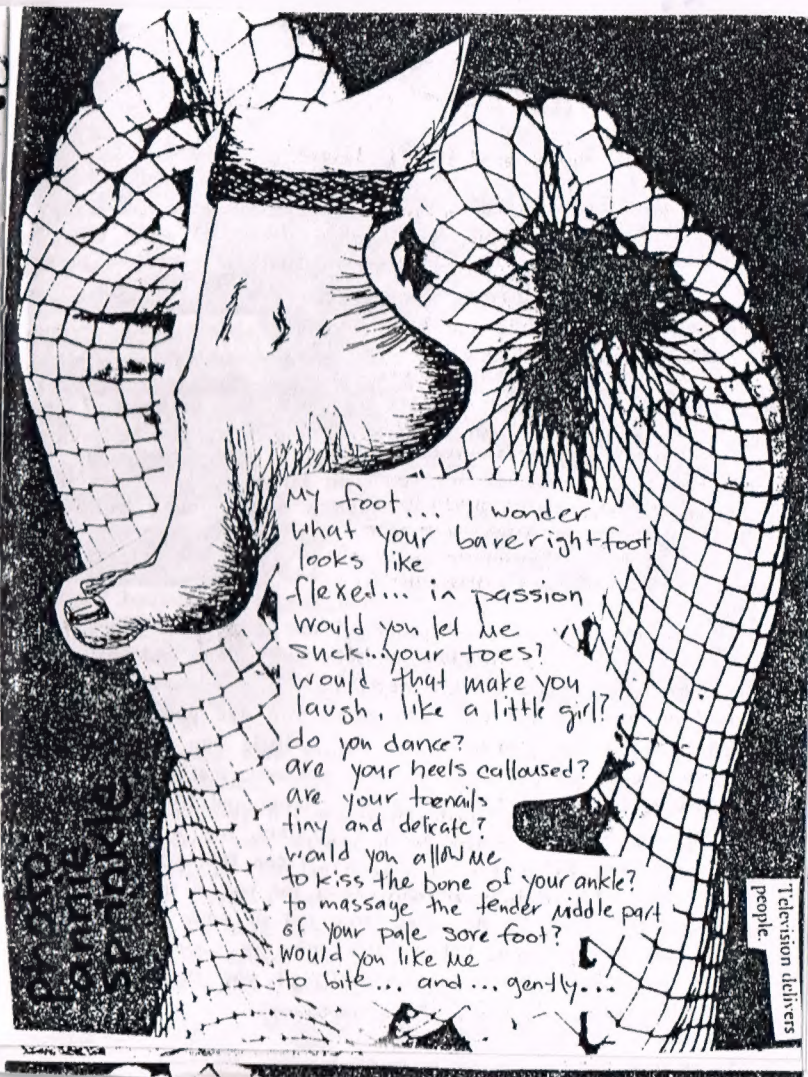 My foot... I wonder
what your bare right foot
looks like
flexed... in passion
would you let me
suck...your toes?
would that make you
laugh, like a little girl?
do you dance?
are your heels calloused?
are your toenails
tiny and delicate?
would you allow me
to kiss the bone of your ankle?
to massage the tender middle part
of your pale sore foot?
Would you like me
to bite... and... gently...
photo
annie
sprinkle
Television delivers
people.